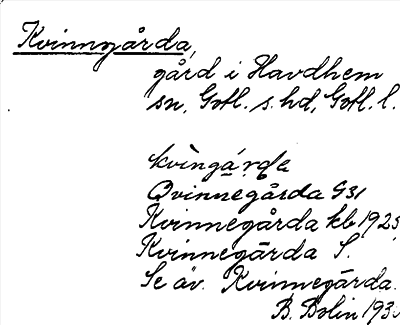 Kvinnegårda,
gård i Havdhem
sn, Gotl. s. hd, Gotl. l.
kvìngá̱rda
Qvinnegårda G31
Kvinnegårda kb 1925
Kvinnegårda S.
Se äv. Kvinnegårda.
B. Bolin 193